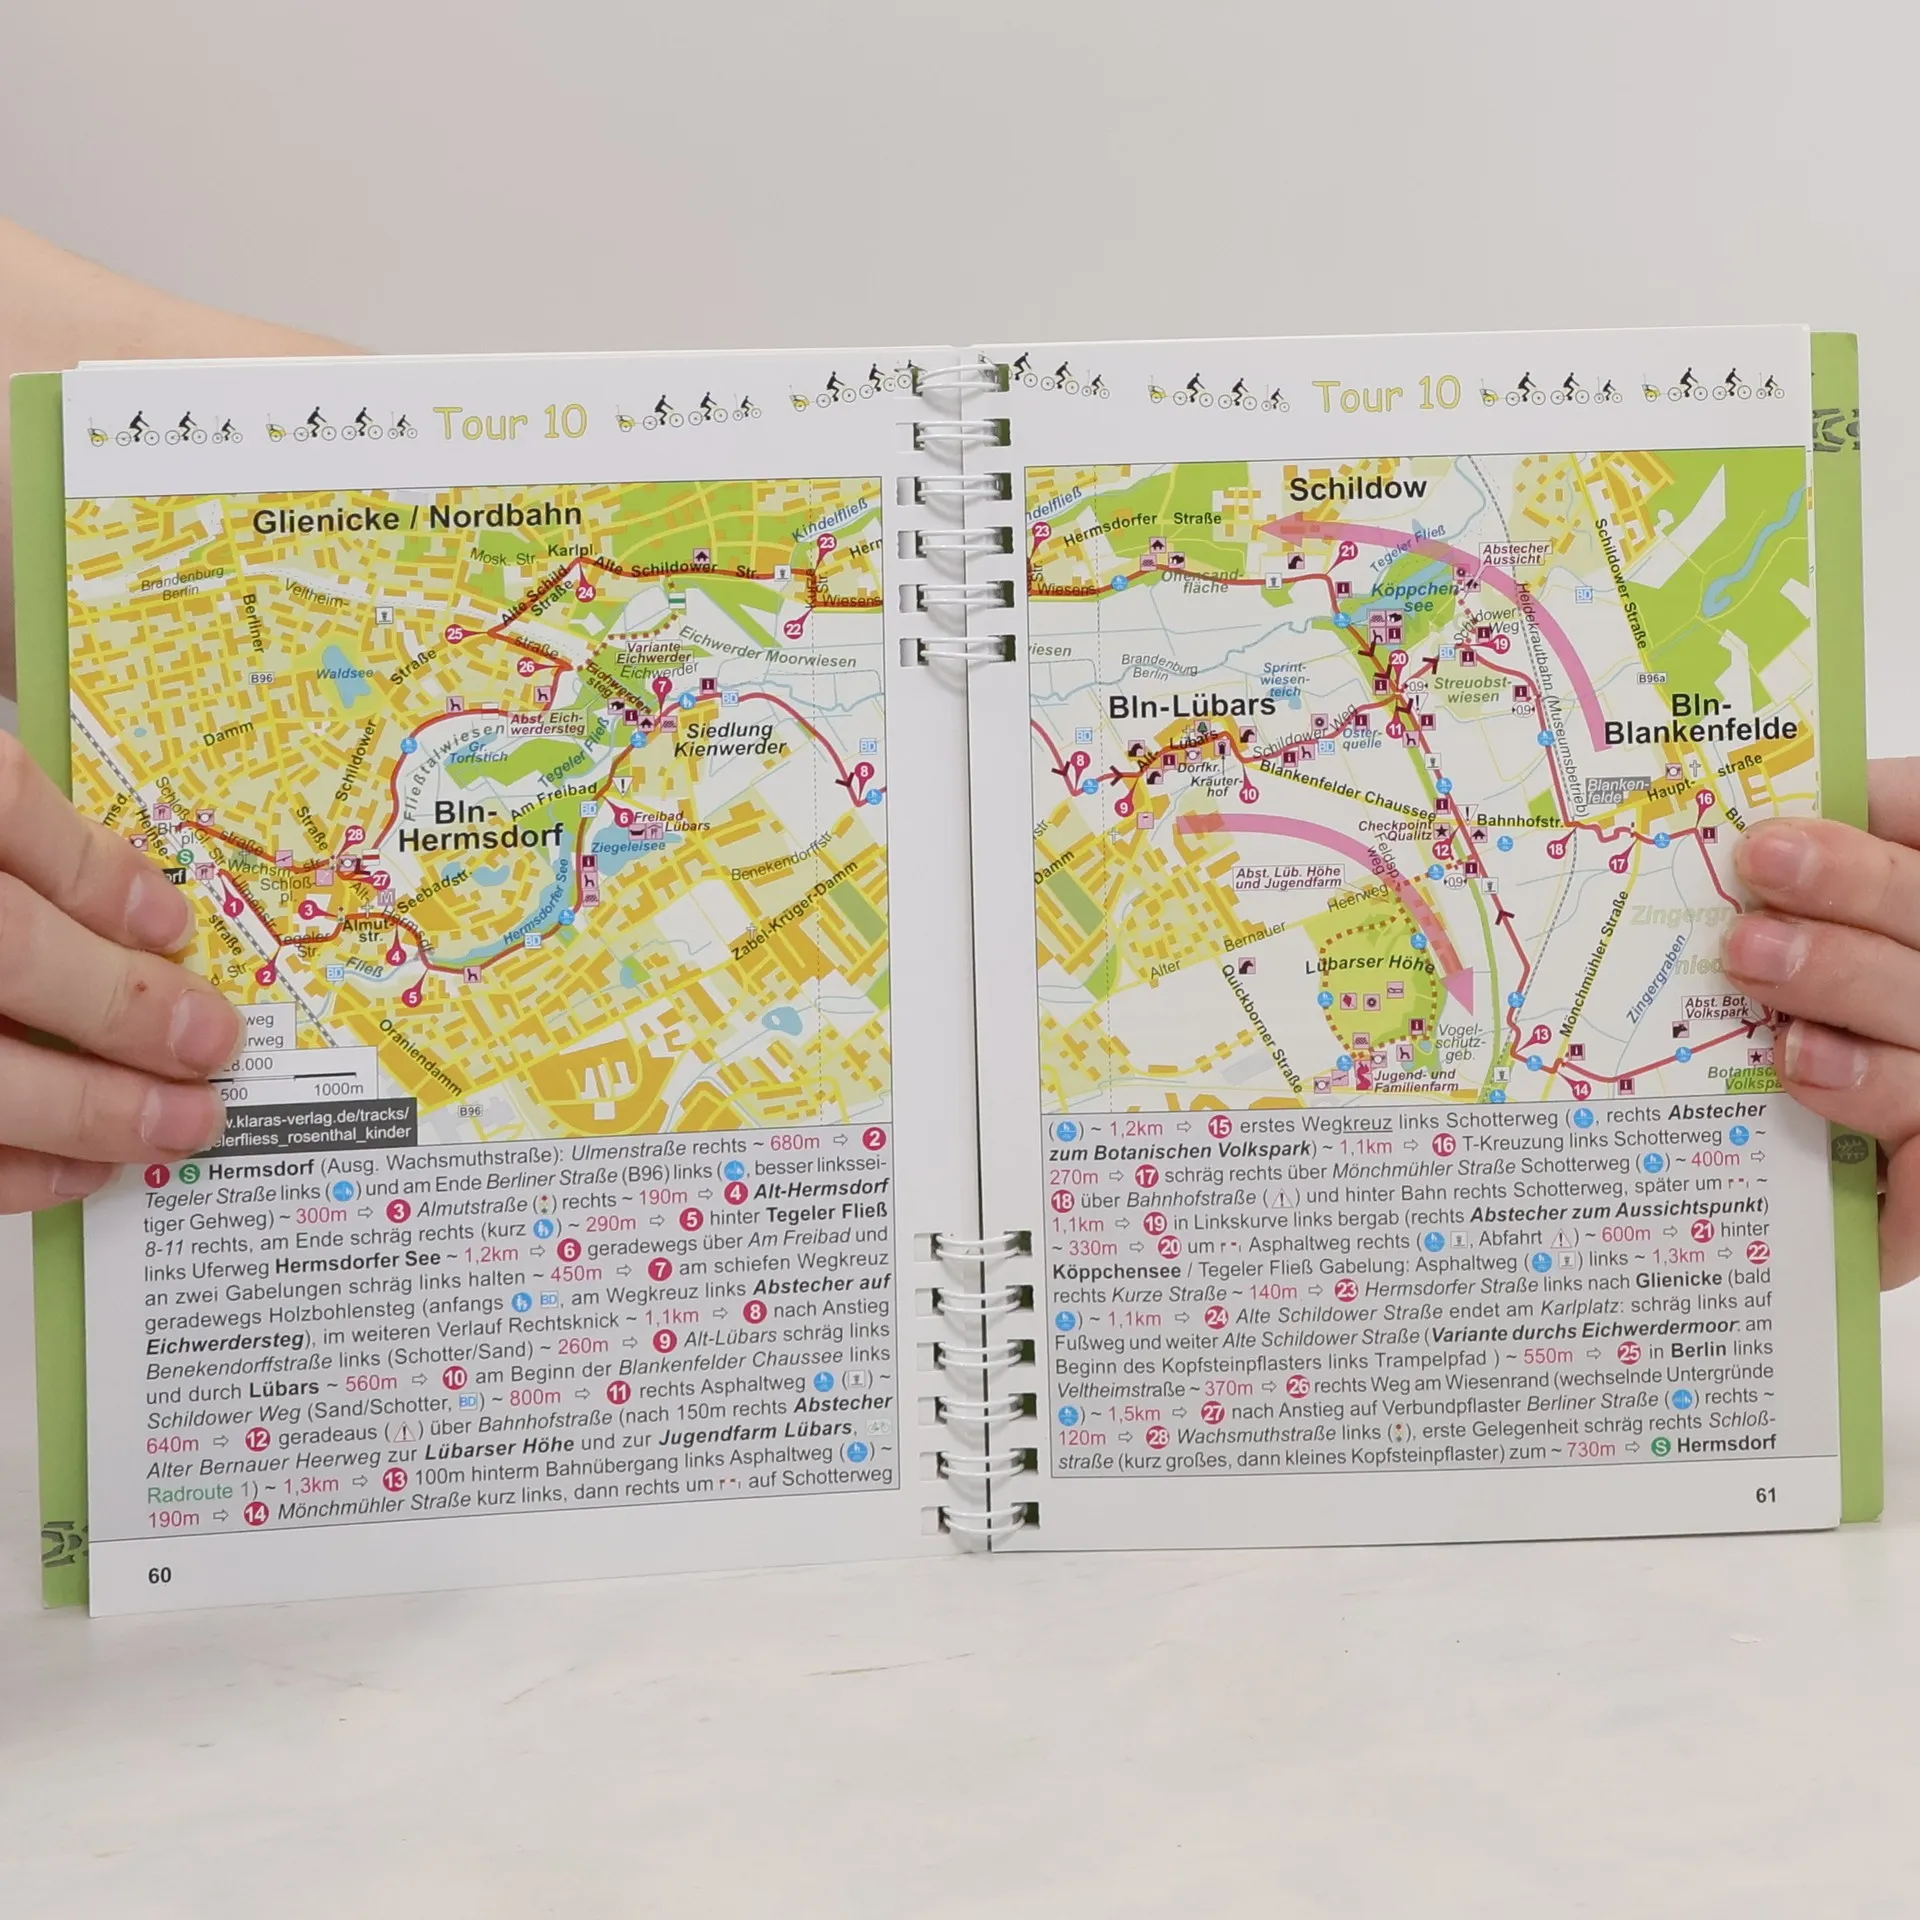 Tour 10
Glienicke / Nordbahn
Kindelfließ
23
Hern
Mosk. Str.
Karlpl.
Alte Schildower Str.
Brandenburg
Berlin
Veltheim-
Berliner
Alte Schild
Straße
24
Kurze
Str.
Wiesens
22
25
straße
26
Eichwerder Moorwiesen
Variante
Eichwerder
Eichwerder
Eichwerder-
steg
7
B96
Waldsee
Straße
Damm
Schildower
Fließtalwiesen
Gr.
Torfstich
Abst. Eich-
werdersteg
Tegeler Fließ
Siedlung
Kienwerder
BD
BD
8
Am Freibad
Bln-
Hermsdorf
BD
6
Freibad
Lübars
Ziegeleisee
Benekendorffstr.
Schloß-
straße
Straße
28
27
Bhf.
pl.
Gl. Str.
Wachsm.
str.
Schloß-
pl.
1
Ulmenstr.
straße
3
Almut-
str.
Alt-
Hermsdf.
Seebadstr.
Hermsdorfer See
BD
Tegeler
Str.
Fließ
BD
4
2
5
Zabel-Krüger-Damm
Oraniendamm
B96
weg
rweg
28.000
500 1000m
w.klaras-verlag.de/tracks/
elerfliess_rosenthal_kinder
1 S Hermsdorf (Ausg. Wachsmuthstraße): Ulmenstraße rechts ~ 680m ⇨ 2
Tegeler Straße links ( ) und am Ende Berliner Straße (B96) links ( , besser linkssei-
tiger Gehweg) ~ 300m ⇨ 3 Almutstraße ( ) rechts ~ 190m ⇨ 4 Alt-Hermsdorf
8-11 rechts, am Ende schräg rechts (kurz ) ~ 290m ⇨ 5 hinter Tegeler Fließ
links Uferweg Hermsdorfer See ~ 1,2km ⇨ 6 geradewegs über Am Freibad und
an zwei Gabelungen schräg links halten ~ 450m ⇨ 7 am schiefen Wegkreuz
geradewegs Holzbohlensteg (anfangs BD, am Wegkreuz links Abstecher auf
Eichwerdersteg), im weiteren Verlauf Rechtsknick ~ 1,1km ⇨ 8 nach Anstieg
Benekendorffstraße links (Schotter/Sand) ~ 260m ⇨ 9 Alt-Lübars schräg links
und durch Lübars ~ 560m ⇨ 10 am Beginn der Blankenfelder Chaussee links
Schildower Weg (Sand/Schotter, BD) ~ 800m ⇨ 11 rechts Asphaltweg ( ) ~
640m ⇨ 12 geradeaus (⚠) über Bahnhofstraße (nach 150m rechts Abstecher
Alter Bernauer Heerweg zur Lübarser Höhe und zur Jugendfarm Lübars,
Radroute 1) ~ 1,3km ⇨ 13 100m hinterm Bahnübergang links Asphaltweg ( ) ~
190m ⇨ 14 Mönchmühler Straße kurz links, dann rechts um auf Schotterweg
60
Tour 10
Schildow
ndelfließ
23
Hermsdorfer Straße
Str.
Wiesens
Offensand-
fläche
21
Tegeler Fließ
Köppchen-
see
Abstecher
Aussicht
BD
Schildower Straße
Heidekrautbahn (Museumsbetrieb)
Schildower
Weg
19
BD
20
09
Streuobst-
wiesen
09
B96a
Bln-
Blankenfelde
wiesen
Brandenburg
Berlin
Sprint-
wiesen-
teich
Bln-Lübars
BD
8
Alt-
Lübars
Dorfkr.
Kräuter-
hof
Schildower Weg
BD
Oster-
quelle
11
9
10
Blankenfelder Chaussee
Checkpoint
Qualitz
12
Bahnhofstr.
18
Blanken-
felde
Haupt-
straße
16
17
Damm
Abst. Lüb. Höhe
und Jugendfarm
Feldsp.
weg
09
Heerweg
Bernauer
Alter
Lübarser Höhe
Quickborner Straße
Vogel-
schutz-
geb.
Jugend- und
Familienfarm
13
14
Mönchmühler Straße
Zingergraben
Abst. Bot.
Volkspark
Botanisch
Volkspa
( ) ~ 1,2km ⇨ 15 erstes Wegkreuz links Schotterweg ( , rechts Abstecher
zum Botanischen Volkspark) ~ 1,1km ⇨ 16 T-Kreuzung links Schotterweg ~
270m ⇨ 17 schräg rechts über Mönchmühler Straße Schotterweg ( ) ~ 400m ⇨
18 über Bahnhofstraße (⚠) und hinter Bahn rechts Schotterweg, später um ~
1,1km ⇨ 19 in Linkskurve links bergab (rechts Abstecher zum Aussichtspunkt)
~ 330m ⇨ 20 um Asphaltweg rechts ( , Abfahrt ⚠) ~ 600m ⇨ 21 hinter
Köppchensee / Tegeler Fließ Gabelung: Asphaltweg ( ) links ~ 1,3km ⇨ 22
rechts Kurze Straße ~ 140m ⇨ 23 Hermsdorfer Straße links nach Glienicke (bald
) ~ 1,1km ⇨ 24 Alte Schildower Straße endet am Karlplatz: schräg links auf
Fußweg und weiter Alte Schildower Straße (Variante durchs Eichwerdermoor: am
Beginn des Kopfsteinpflasters links Trampelpfad ) ~ 550m ⇨ 25 in Berlin links
Veltheimstraße ~ 370m ⇨ 26 rechts Weg am Wiesenrand (wechselnde Untergründe
) ~ 1,5km ⇨ 27 nach Anstieg auf Verbundpflaster Berliner Straße ( ) rechts ~
120m ⇨ 28 Wachsmuthstraße links ( ), erste Gelegenheit schräg rechts Schloß-
straße (kurz großes, dann kleines Kopfsteinpflaster) zum ~ 730m ⇨ S Hermsdorf
61